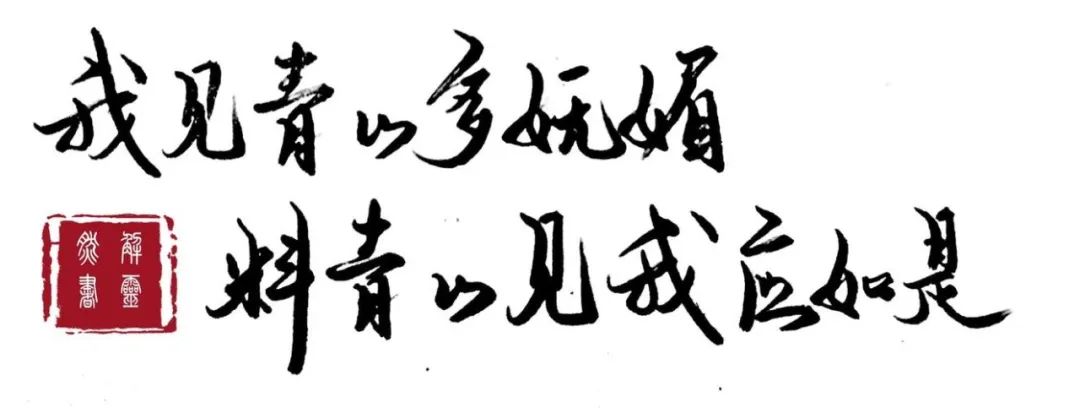 我见青山多妩媚
料青山见我应如是
解灵然書